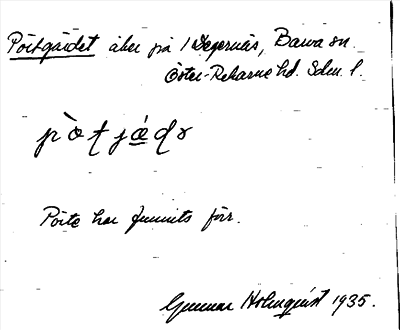 Pörtgärdet åker på 1 Degernäs, Barva sn.
Öster-Rekarne hd. Sdm. l.
Pörte har funnits förr.
Gunnar Holmquist 1935.